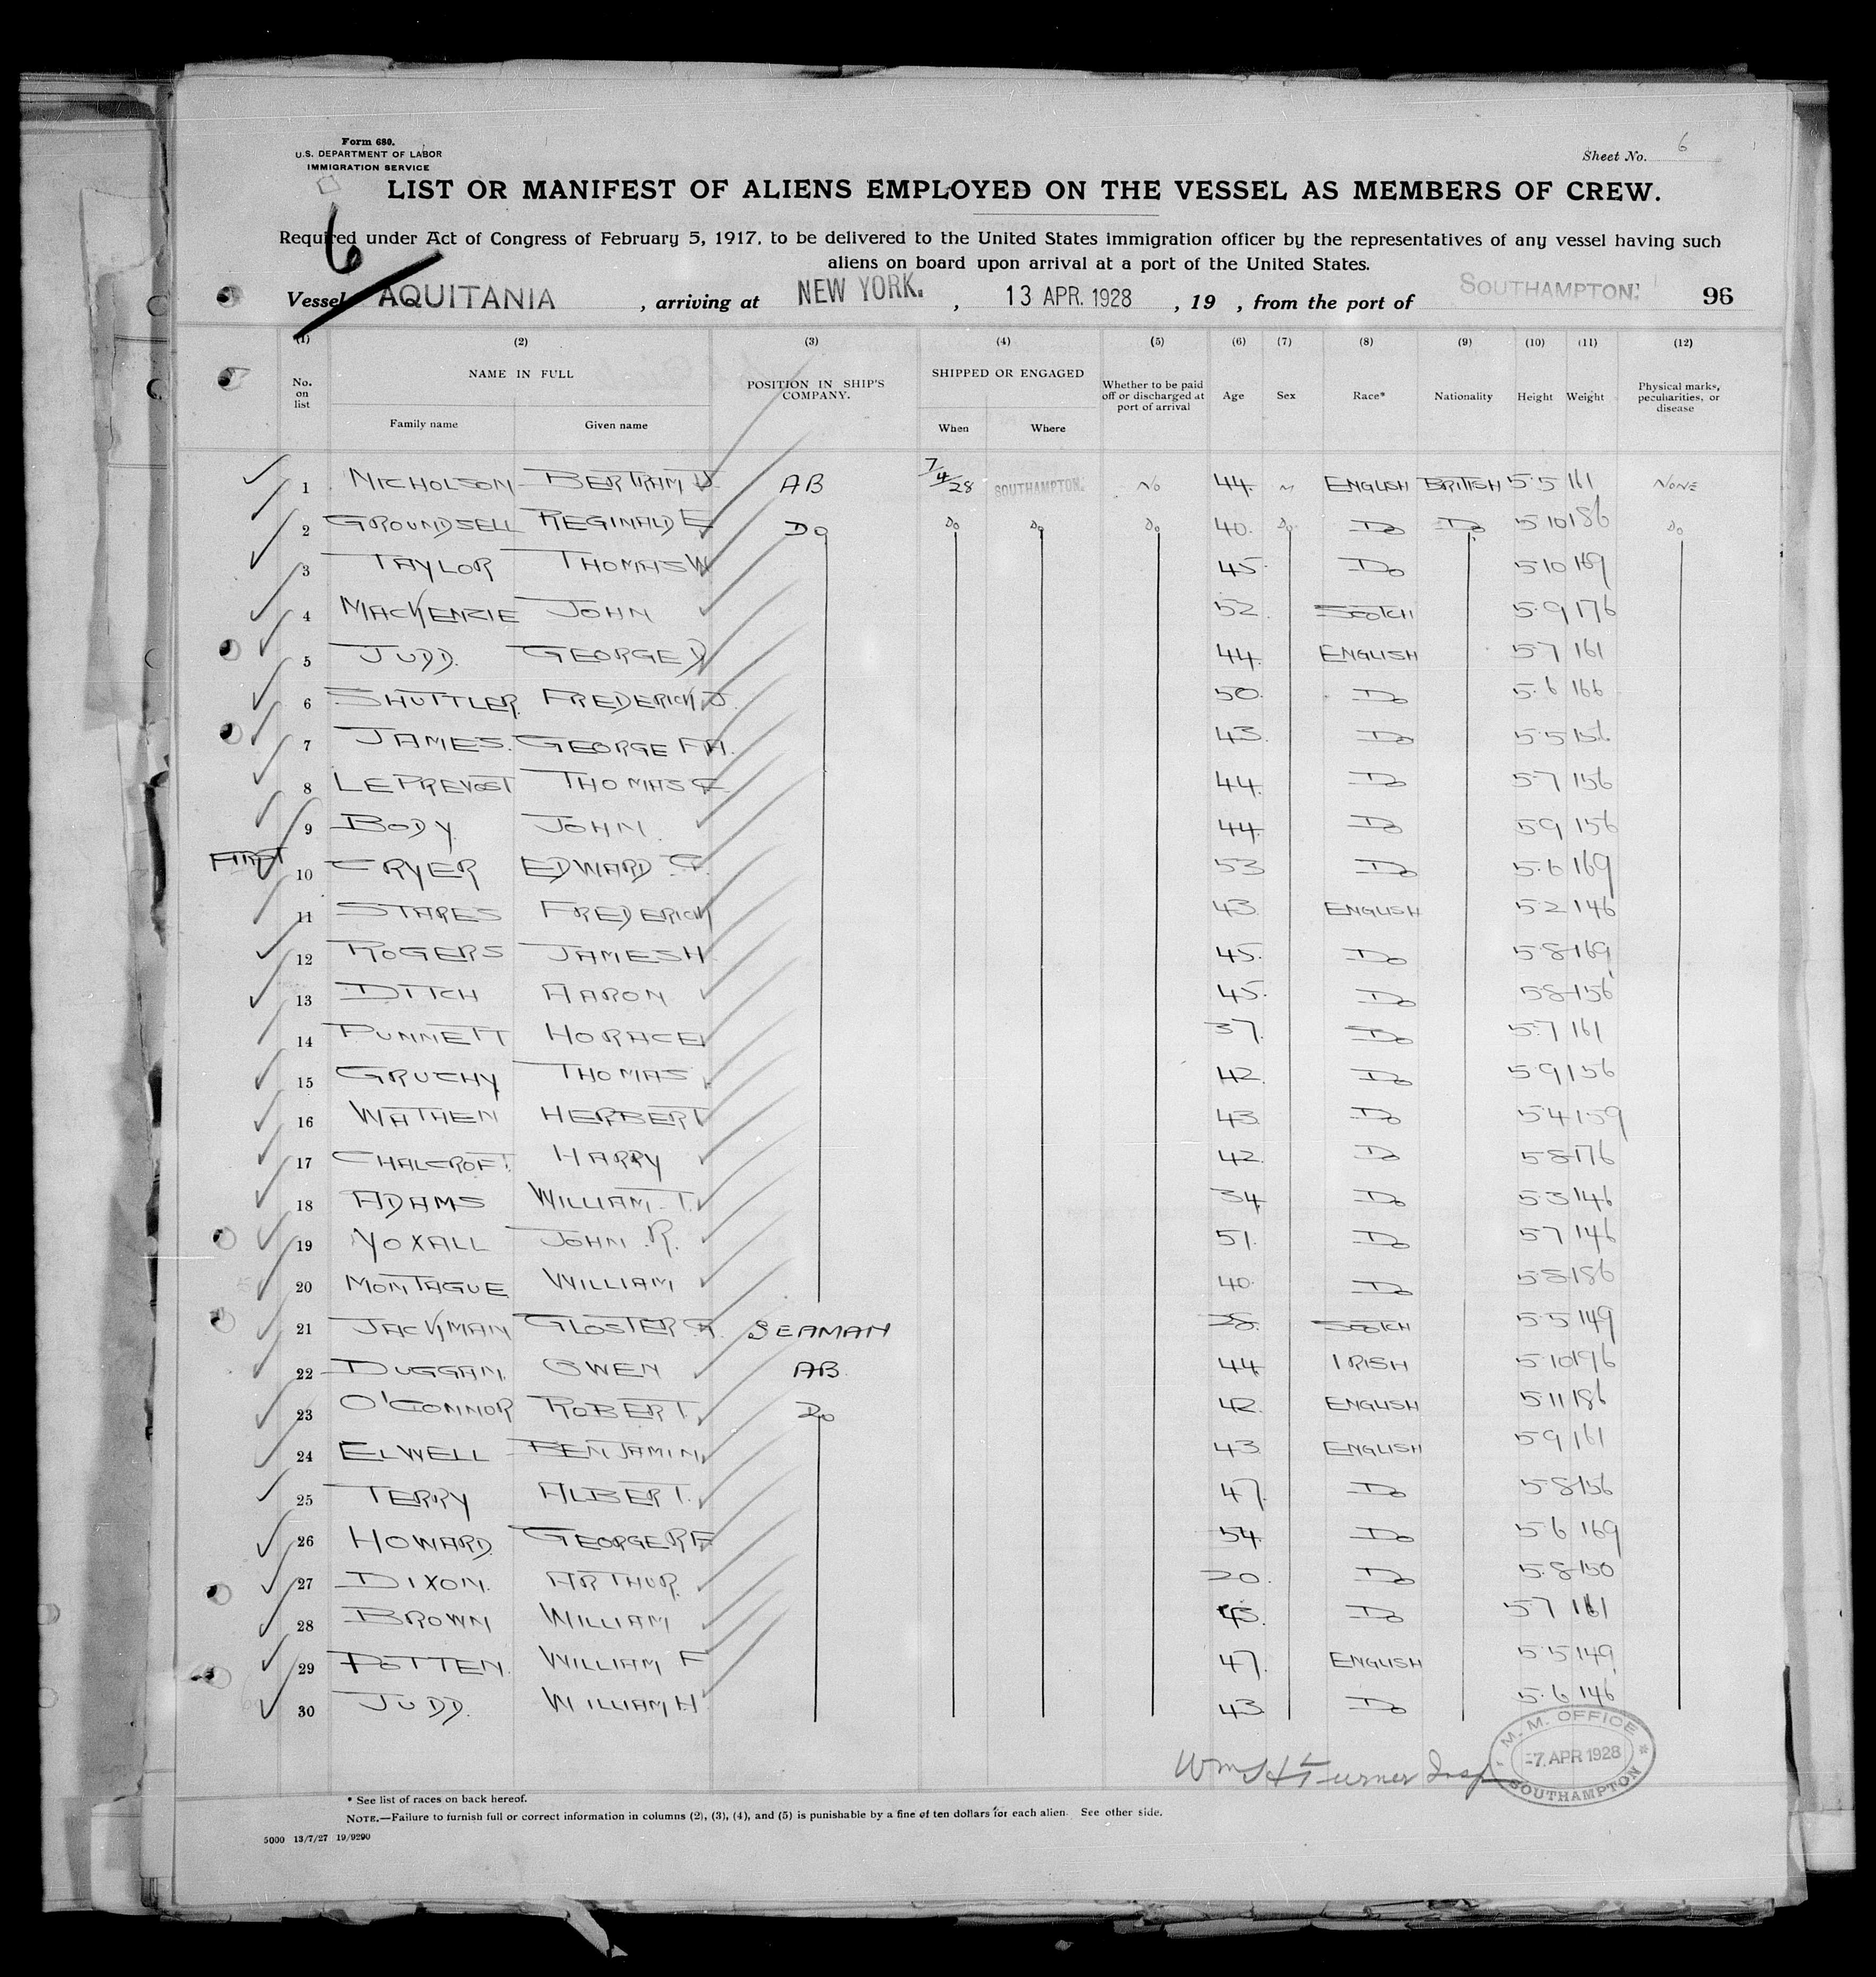 Form 680.
U.S. DEPARTMENT OF LABOR
IMMIGRATION SERVICE
Sheet No. 6
LIST OR MANIFEST OF ALIENS EMPLOYED ON THE VESSEL AS MEMBERS OF CREW.
6
Required under Act of Congress of February 5, 1917, to be delivered to the United States immigration officer by the representatives of any vessel having such
aliens on board upon arrival at a port of the United States.
Vessel AQUITANIA , arriving at NEW YORK. , 13 APR. 1928 , 19 , from the port of SOUTHAMPTON. 96
(1) (2) (3) (4) (5) (6) (7) (8) (9) (10) (11) (12)
No. on list NAME IN FULL Family name Given name POSITION IN SHIP'S COMPANY. SHIPPED OR ENGAGED When Where Whether to be paid off or discharged at port of arrival Age Sex Race* Nationality Height Weight Physical marks, peculiarities, or disease
1 NICHOLSON BERTRAM J AB 7/4/28 SOUTHAMPTON. No 44 M ENGLISH BRITISH 5.5 161 NONE
2 GROUNDSELL REGINALD E Do Do Do Do 40 Do Do Do 5 10 186 Do
3 TAYLOR THOMAS W 45 Do 5 10 169
4 MACKENZIE JOHN 52 SCOTCH 5.9 176
5 JUDD. GEORGE D 44 ENGLISH 5.7 161
6 SHUTTLER FREDERICK J. 50 Do 5.6 166
7 JAMES. GEORGE F A. 43 Do 5.5 156
8 LE PREVOST THOMAS 44 Do 5.7 156
9 BODY JOHN 44 Do 5 9 156
FIRST 10 CRYER EDWARD G. 53 Do 5.6 169
11 STARES FREDERICK 43 ENGLISH 5.2 146
12 ROGERS JAMES H 45 Do 5.8 169
13 DITCH AARON 45 Do 5 8 156
14 PUNNETT HORACE 37 Do 5.7 161
15 GRUCHY THOMAS 42 Do 5 9 156
16 WATHEN HERBERT 43 Do 5.4 159
17 CHALCROFT HARRY 42 Do 5 8 176
18 ADAMS WILLIAM T. 34 Do 5.3 146
19 YOXALL JOHN R. 51 Do 5 7 146
20 MONTAGUE WILLIAM 40 Do 5.8 186
21 JACKMAN GLOSTER SEAMAN 38 SCOTCH 5.5 149
22 DUGGAN OWEN AB 44 IRISH 5.10 196
23 O'CONNOR ROBERT Do 42 ENGLISH 5.11 186
24 ELWELL BENJAMIN 43 ENGLISH 5 9 161
25 TERRY ALBERT. 47 Do 5.8 156
26 HOWARD GEORGE R F 54 Do 5.6 169
27 DIXON. ARTHUR 20 Do 5.8 150
28 BROWN WILLIAM 45 Do 5 7 161
29 POTTEN. WILLIAM F 47 ENGLISH 5.5 149
30 JUDD. WILLIAM H 43 Do 5.6 146
Wm H Turner Insp
M. M. OFFICE
-7. APR 1928
SOUTHAMPTON
* See list of races on back hereof.
NOTE.—Failure to furnish full or correct information in columns (2), (3), (4), and (5) is punishable by a fine of ten dollars for each alien. See other side.
5000 13/7/27 19/9290